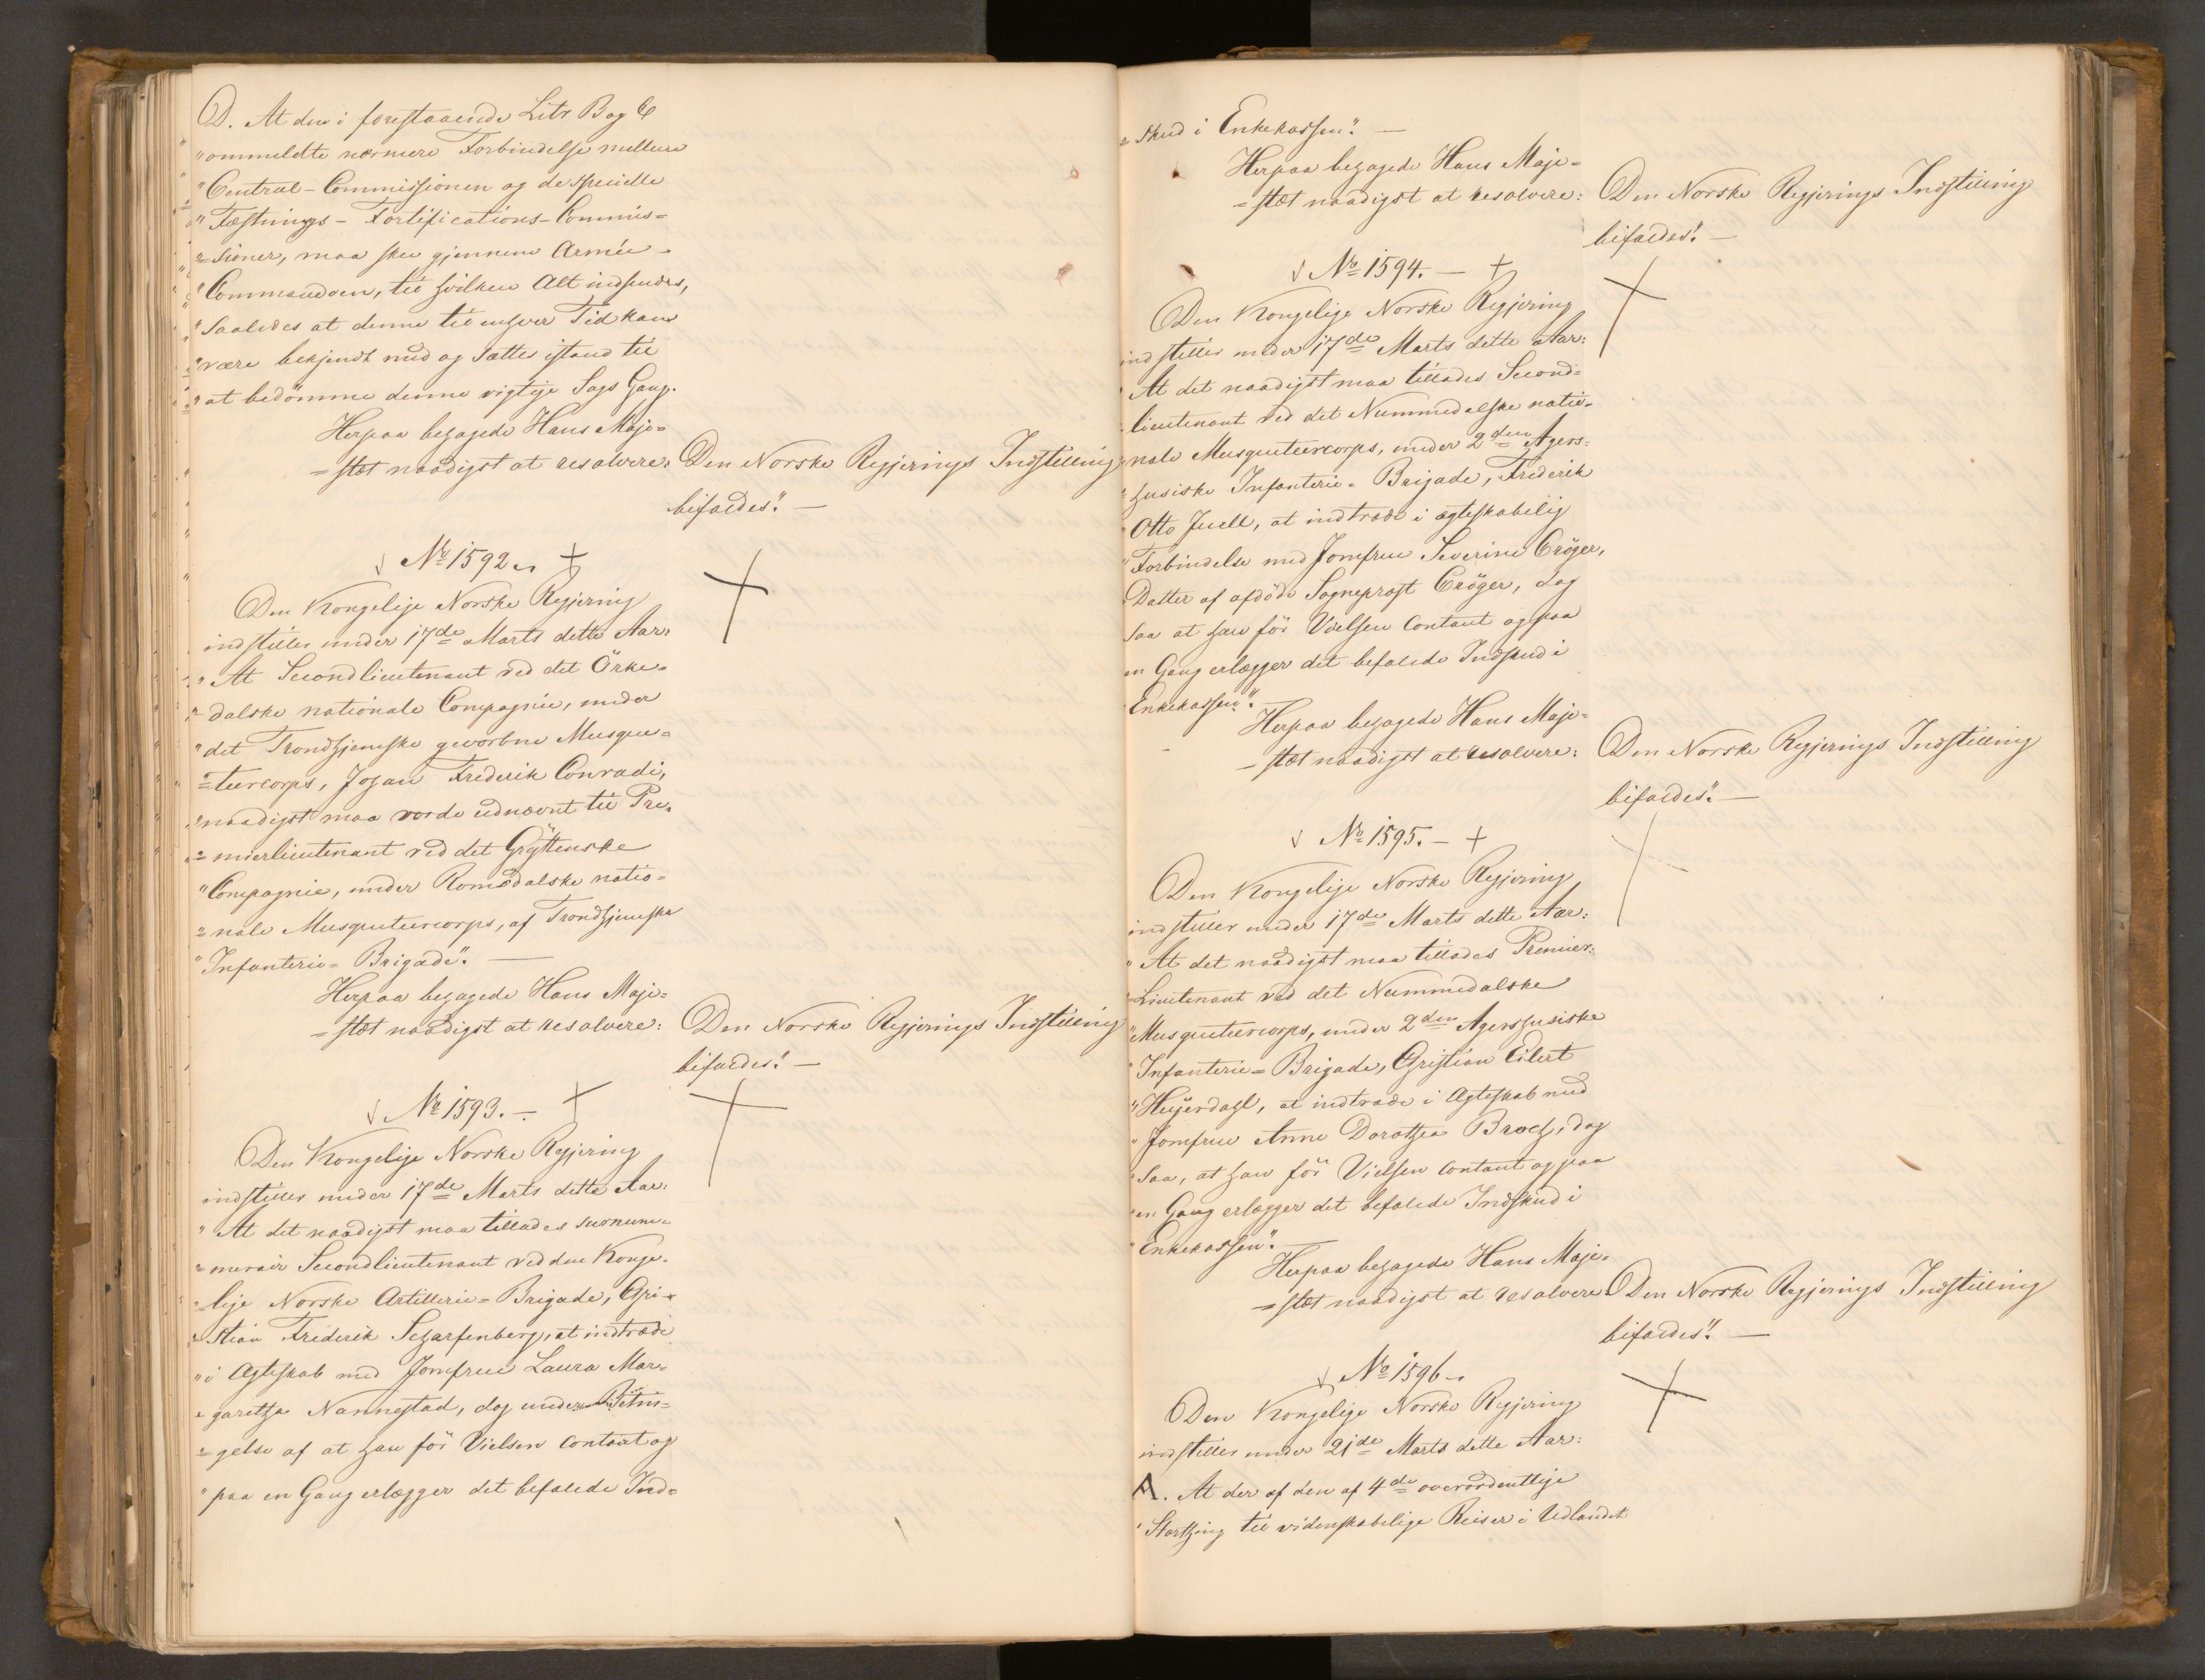 D. At den i forestaaende Litr B og C
"ommeldte nærmere Forbindelse mellem
"Central-Commissionen og de specielle
"Fæstnings-Fortifications-Commis=
"=sioner, maa skee gjennem Armée-
"Commandoen, til hvilken Alt indsendes,
"saaledes at denne til enhver Tid kan
"være bekjendt med og sættes istand til
"at bedömme denne vigtige Sags Gang.
Herpaa behagede Hans Maje=
=stæt naadigst at resolvere: Den Norske Regjerings Indstilling
bifaldes". —
No 1592.
Den Kongelige Norske Regjering
indstiller under 17de Marts dette Aar:
"At Secondlieutenant ved det Örke=
"=dalske nationale Compagnie, under
"det Trondhjemske gevorbne Musque=
"=teercorps, Johan Frederik Conradi,
"naadigst maa vorde udnævnt til Pre=
"=mierlieutenant ved det Grÿttenske
"Compagnie, under Romsdalske natio=
"=nale Musqueteercorps, af Trondhjemske
"Infanterie=Brigade". —
Herpaa behagede Hans Maje=
=stæt naadigst at resolvere: Den Norske Regjerings Indstilling
bifaldes". —
No 1593. —
Den Kongelige Norske Regjering
indstiller under 17de Marts dette Aar:
"At det naadigst maa tillades surnum=
"=merair Secondlieutenant ved den Konge=
"=lige Norske Artillerie=Brigade, Chri=
"=stian Friderik Scharfenberg, at indtræde
"i Ægteskab med Jomfrue Laura Mar=
"=garetha Nannestad, dog under Betin=
"=gelse af at han för Vielsen contant og
"paa en Gang erlægger det befalede Ind=
"=skud i Enkekassen". —
Herpaa behagede Hans Maje=
=stæt naadigst at resolvere: Den Norske Regjerings Indstilling
bifaldes". —
No 1594. —
Den Kongelige Norske Regjering
indstiller under 17de Marts dette Aar:
"At det naadigst maa tillades Second=
"lieutenant ved det Nummedalske natio=
"nale Musqueteercorps, under 2den Agers=
"husiske Infanterie=Brigade, Frederik
"Otto Juell, at indtræde i ægteskabelig
"Forbindelse med Jomfrue Severine Cröger,
"Datter af afdöde Sogneprest Cröger, dog
"saa at han för Vielsen contant og paa
"en Gang erlægger det befalede Indskud i
"Enkekassen".
Herpaa behagede Hans Maje=
=stæt naadigst at resolvere: Den Norske Regjerings Indstilling
bifaldes". —
No 1595. —
Den Kongelige Norske Regjering
indstiller under 17de Marts dette Aar:
"At det naadigst maa tillades Premier=
"Lieutenant ved det Nummedalske
"Musqueteercorps, under 2den Agershusiske
"Infanterie=Brigade, Christian Eilert
"Heÿerdahl, at indtræde i Ægteskab med
"Jomfrue Anne Dorothea Broch, dog
"saa, at han för Vielsen contant og paa
"en Gang erlægger det befalede Indskud i
"Enkekassen".
Herpaa behagede Hans Maje=
=stæt naadigst at resolvere: Den Norske Regjerings Indstilling
bifaldes". —
No 1596.
Den Kongelige Norske Regjering
indstiller under 21de Marts dette Aar:
A. At der af den af 4de overordentlige
"Storthing til videnskabelige Reiser i Udlandet